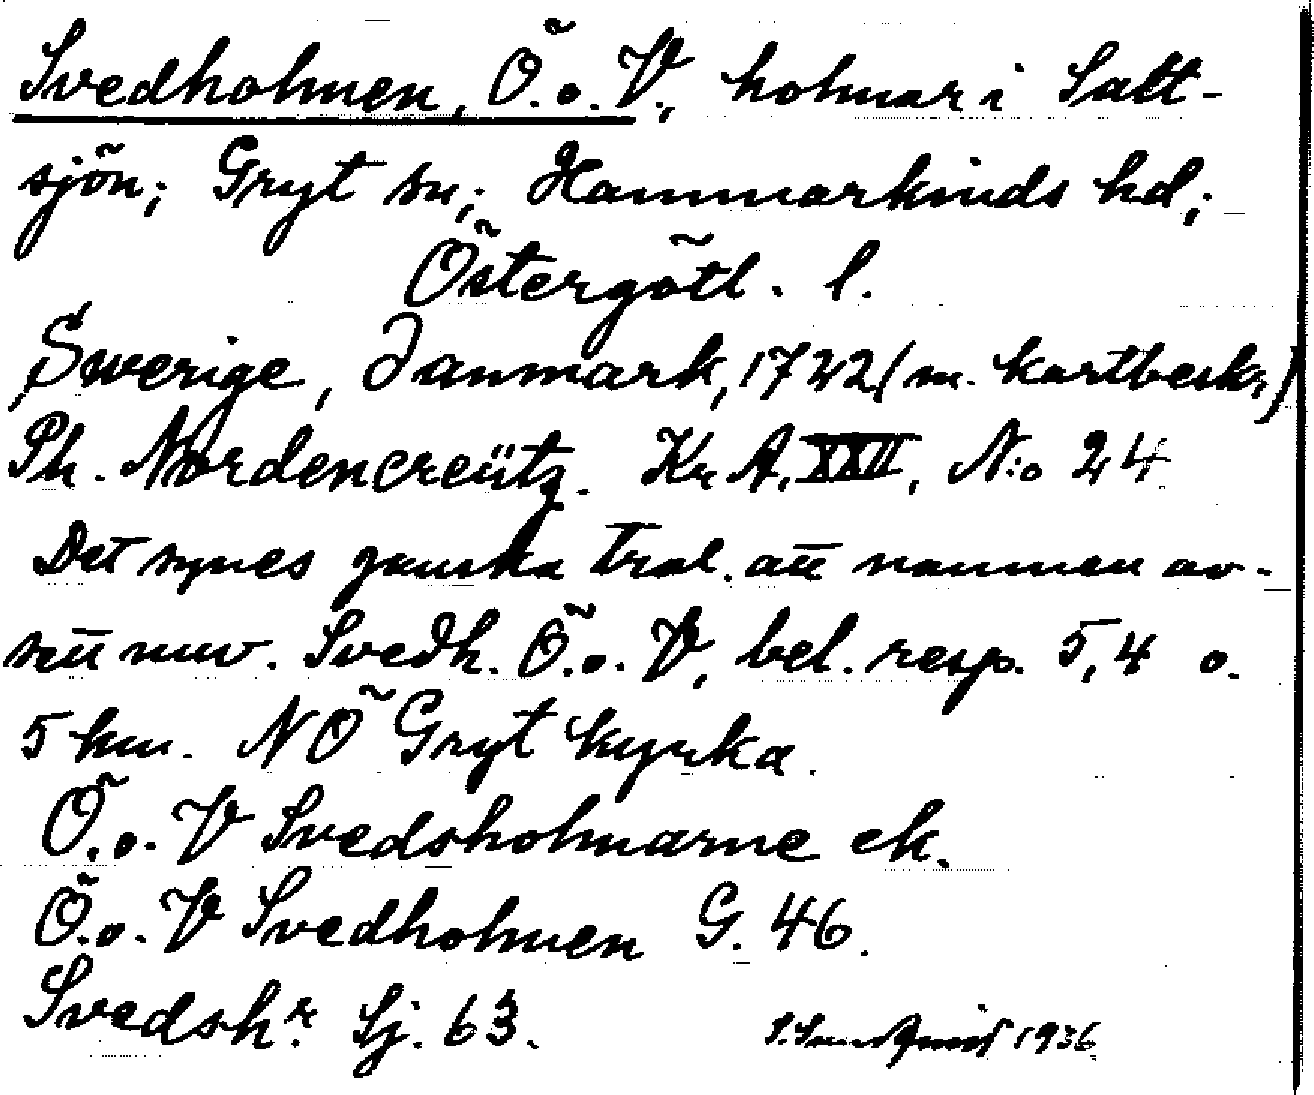 Svedholmen, Ö. o. V., holmar i Salt-
sjön; Gryt sn; Hammarkinds hd;
Östergötl. l.
Swerige, Danmark, 1722 (m. kartbeskr.)
Ph. Nordencreütz. Kr. A. XXII, N:o 24
Det synes ganska trol. att namnen av-
sett nuv. Svedh. Ö. o. V, bel. resp. 5,4 o.
5 km. NÖ Gryt kyrka.
Ö. o. V Svedsholmarne ek.
Ö. o. V Svedholmen G. 46.
Svedshr. Sj. 63. S. Sundquist 1936